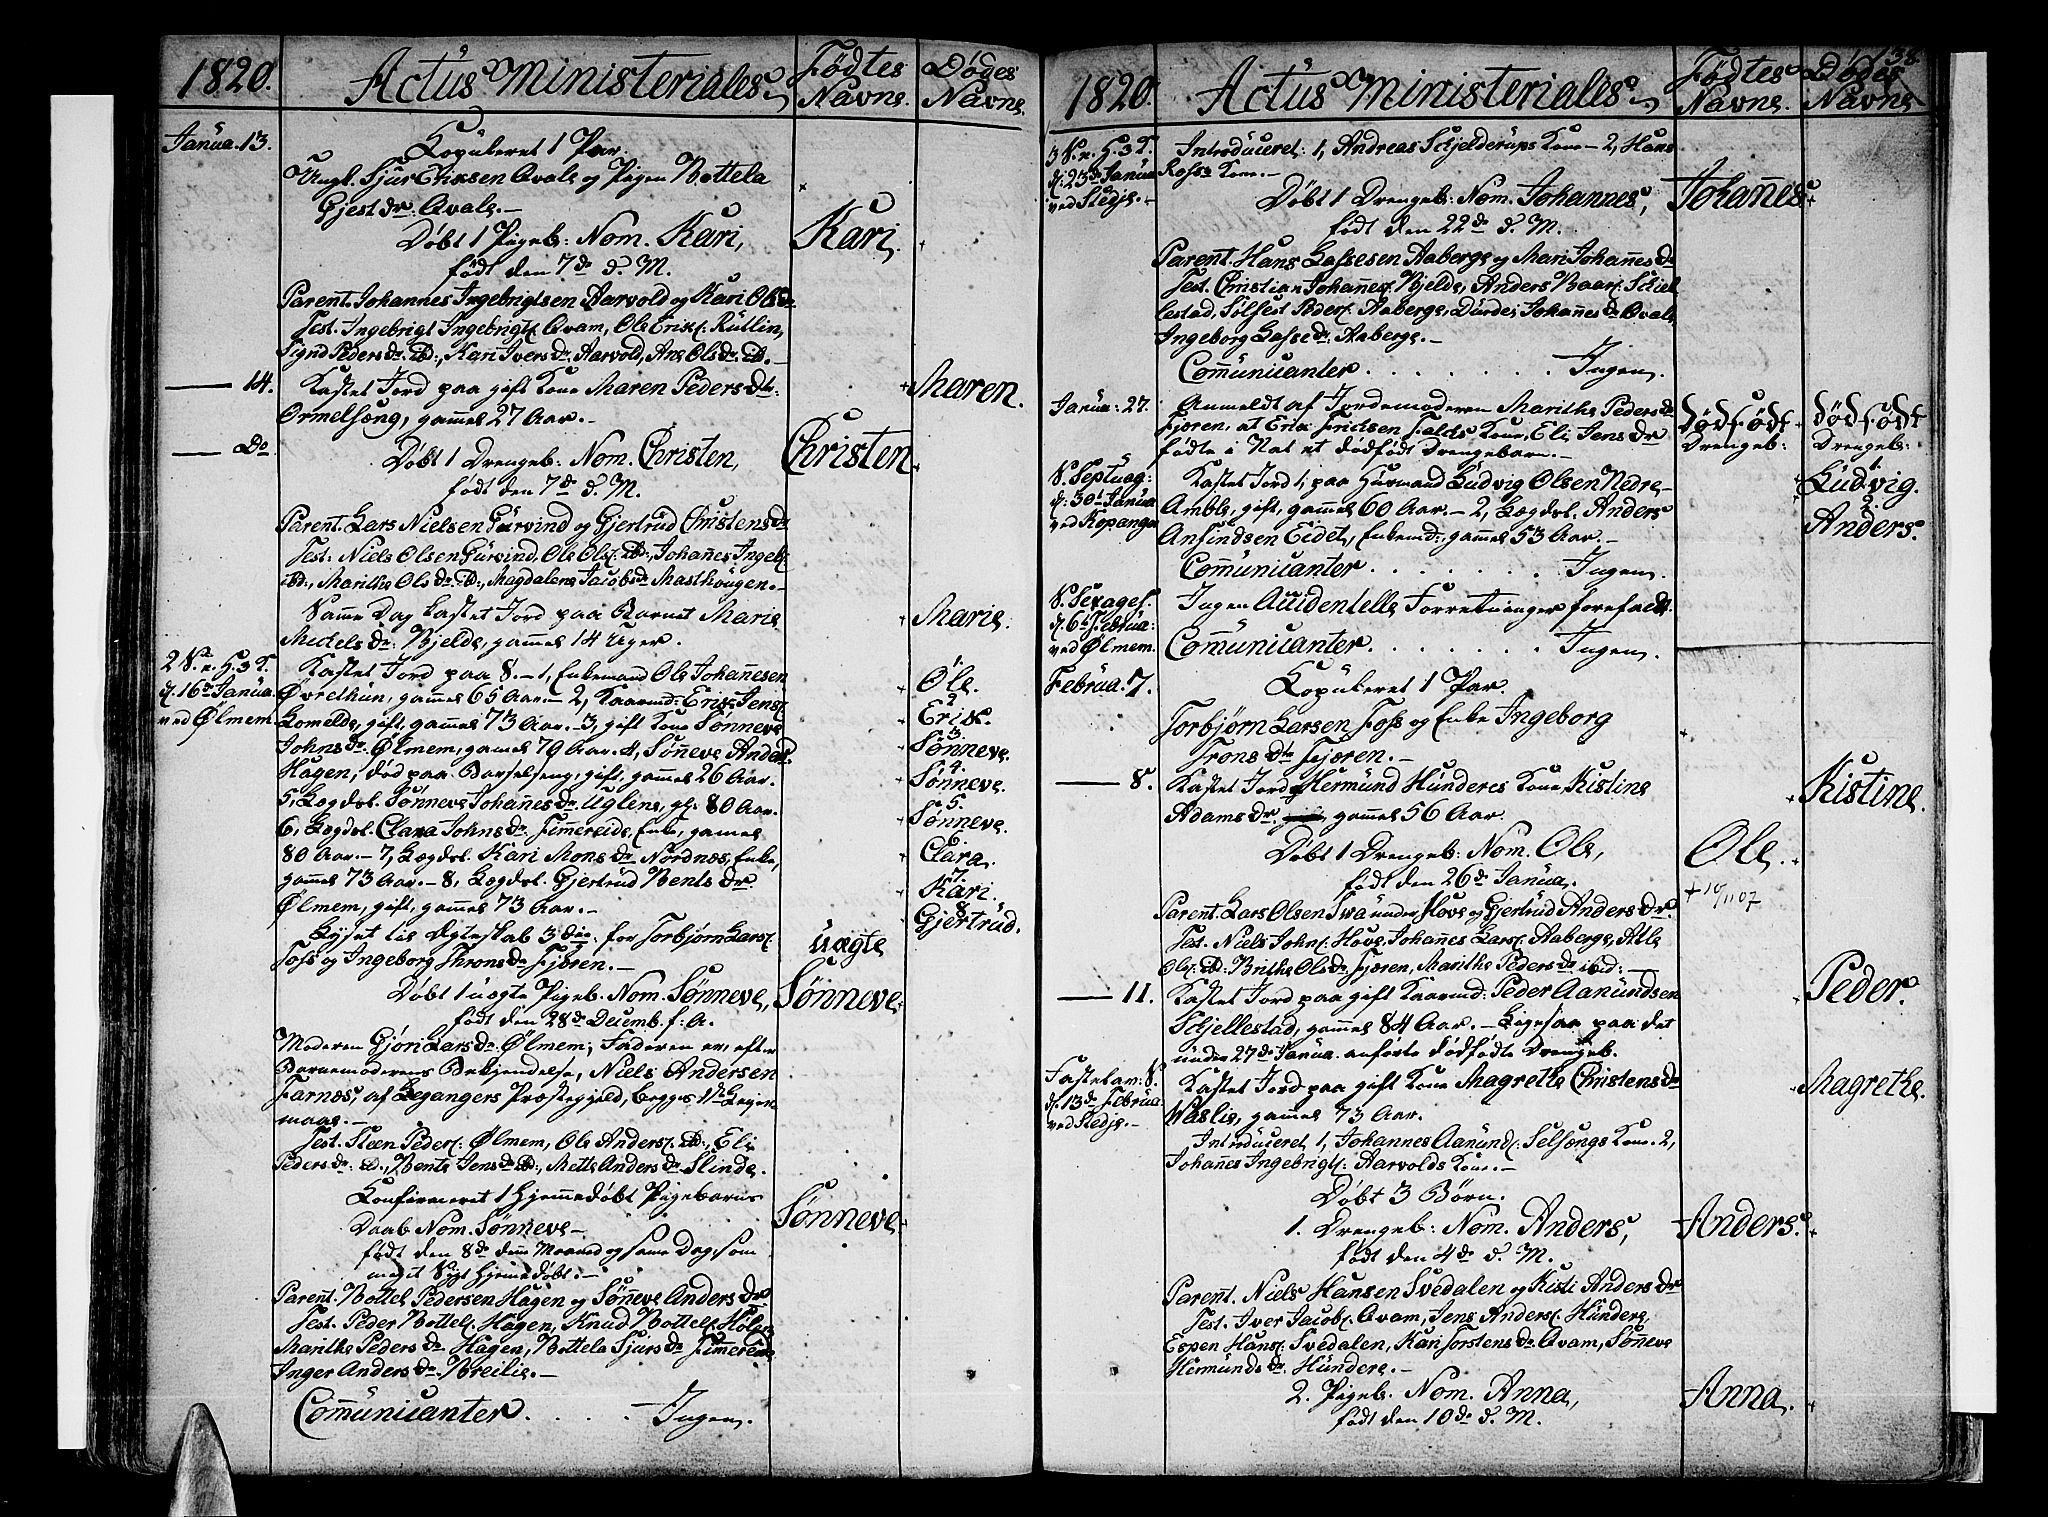 1820.
Actus Ministeriales
Födtes Navne.
Dödes Navne.
Janua. 13.
Kopuleret 1 Par.
Ungk. Sjur Eriksen Qvale og Pigen Bottela
Gjestdr. Qvale.
Döbt 1 Pigeb: Nom. Kari,
Kari.
födt den 7de d. M.
Parent. Johannes Ingebrigtsen Aarvold og Kari Olsdr
Test. Ingebrigt Ingebrigts. Qvam, Ole Eriks. Rutlin,
Signd Pedersdr. ibd:, Kari Iversdr. Aarvold, Ane Olsdr. ibd.
14.
Kastet Jord paa gift Kone Maren Pedersdtr:
Maren.
Ormelsæng, gammel 27 Aar.
Do
Döbt 1 Drengeb: Nom. Christen,
Christen
födt den 7de d. M.
Parent. Lars Nielsen Gurvind og Gjertrud Christensdr
Test. Niels Olsen Gurvind, Ole Ols. ibd:, Johannes Ingeb.
ibd:, Marithe Olsdr. ibd:, Magdalene Jacobsdr Masthougen.
Samme Dag kastet Jord paa Barnet Marie
Marie.
Michelsdr. Bjelde, gammel 14 Uger.
2 S. e. H. 3 K.
d. 16de Janua.
ved Ølmem.
Kastet Jord paa 8. - 1, Enkemand Ole Johannesen
Øvrethun, gammel 65 Aar. - 2, Kaarmd: Erik Jens.
Lomelde, gift, gammel 73 Aar. - 3, gift Kone Sønneve
Johnsdr. Ølmem, gamel 79 Aar. 4, Sønneve Anders
Hagen, död paa Barselseng, gift, gammel 26 Aar.
5, Lægdsl. Sønneve Johanesdr. Uglene, gl: 80 Aar.
6, Lægdsl. Clara Johnsdr. Fimereide, Enke, gamel
80 Aar. - 7, Lægdsl. Kari Monsdr Nordnæs, Enke,
gammel 73 Aar. - 8, Lægdsl. Gjertrud Bentsdr
Ølmem, gift, gammel 73 Aar.
1.
Ole.
2.
Erik.
3.
Sønneve.
4.
Sønneve.
5.
Sønneve.
6.
Clara.
7.
Kari.
8.
Gjertrud.
Lyset til Ægteskab 3die: for Torbjørn Lars.
Foss og Ingeborg Thronsdr Fjøren.
Döbt 1 uægte Pigeb. Nom. Sønneve,
uægte
Sønneve
födt den 28de Decemb. f: A.
Moderen Gjøri Larsdr: Ølmem; Faderen er, efter
Barnemoderens Bekjendelse, Niels Andersen
Farnæs, af Leganger Præstegjeld, begges 1ste Leier
maal.
Test. Steen Peders. Ølmem, Ole Anders. ibd:, Eli
Pedersdr: ibd:, Bente Jensdr ibd:, Mette Andersdr Slinde.
Konfirmeret 1 hjemmedöbt Pigebarns
Daab Nom. Sønneve
Sønneve
födt den 8de denne Maaned og same Dag, som
meget Sygt hjemedöbt.
Parent. Bottel Pedersen Hagen og Sønneve Andersdr
Test. Peder Bottels. Hagen, Knud Bottels. Holen
Marithe Pedersdr Hagen, Bottela Sjursdr Fimereide
Inger Andersdr Breilie.
Communicanter . . . . . Ingen.
1820.
Actus Ministeriales
Födtes Navne.
Dödes Navne
138
3 S. e. H. 3 K.
d. 23de Janua
ved Stedje.
Introduceret: 1, Andreas Schjelderups Kone - 2, Hans
Ross's Kone.
Döbt 1 Drengeb: Nom. Johannes,
Johanes
födt den 22de d. M.
Parent. Hans Lassesen Aaberge og Mari Johannesdr
Test. Christian Johannes. Bjelde, Anders Baars. Schiel
lestad, Sølfest Peders. Aaberge, Dürdei Johannesdr. Qvale,
Ingeborg Lassedr. Aaberge.
Communicanter . . . . . . . Ingen.
Janua: 27.
Anmeldt af Jordemoderen Marithe Pedersdr
Fjæren, at Erik Eriksen Falds Kone, Eli Jensdr
födte i Nat et dödfödt Drengebarn.
dödfödt
Drengeb:
dödfödt
Drengeb:
S. Septuag:
d. 30te Janua
ved Kopanger
Kastet Jord 1, paa Husmand Ludvig Olsen Nedre-
Amble, gift, gammel 60 Aar. - 2, Lægdsl. Anders
Anfindsen Eidet, Enkemd: gammel 53 Aar.
1.
Ludvig.
2.
Anders.
Communicanter . . . . . . . Ingen.
S. Sexages.
d. 6te Febrüa:
ved Ølmem.
Ingen Accidentelle Forretninger forefaldt.
Communicanter . . . . . . . Ingen.
Februa. 7.
Kopuleret 1 Par.
Torbjørn Larsen Foss og Enke Ingeborg
Tronsdtr Fjæren.
8.
Kastet Jord Hermund Hunderes Kone, Kistine
Kistine.
Adamsdr. gammel 56 Aar.
Döbt 1 Drengeb: Nom. Ole,
Ole.
födt den 26de Janua.
+ 10/11 07
Parent. Lars Olsen Swa under Hove og Gjertrud Andersdr.
Test. Niels Johns. Hove, Johannes Lars. Aaberge, Atle
Ols. ibd: Brithe Olsdr. Fjæren, Marithe Pedersdr ibid:
11.
Kastet Jord paa gift Kaarmd: Peder Aamundsen
Peder.
Schjellestad, gammel 84 Aar. - Ligesaa paa det
under 27de Janua. anförte dödfödte Drengeb.
Fastelavns S.
d. 13de Februa.
ved Stedje.
Kastet Jord paa gift Kone Magrethe Christensdr
Magrethe.
Waslie, gammel 73 Aar.
Introduceret 1, Johannes Aamund. Selsengs Kone. 2,
Johanes Ingebrigts. Aarvolds Kone.
Döbt 3 Börn.
1. Drengeb: Nom. Anders,
Anders.
födt den 4de d. M.
Parent. Niels Hansen Svedalen og Kisti Andersdr
Test. Iver Jacobs. Qvam, Jens Anders. Hundere
Espen Hans. Svedalen, Kari Torstensdr Qvam, Sønneve
Hermundsdr. Hundere.
2. Pigeb. Nom. Anna,
Anna.
födt den 10de d. M.